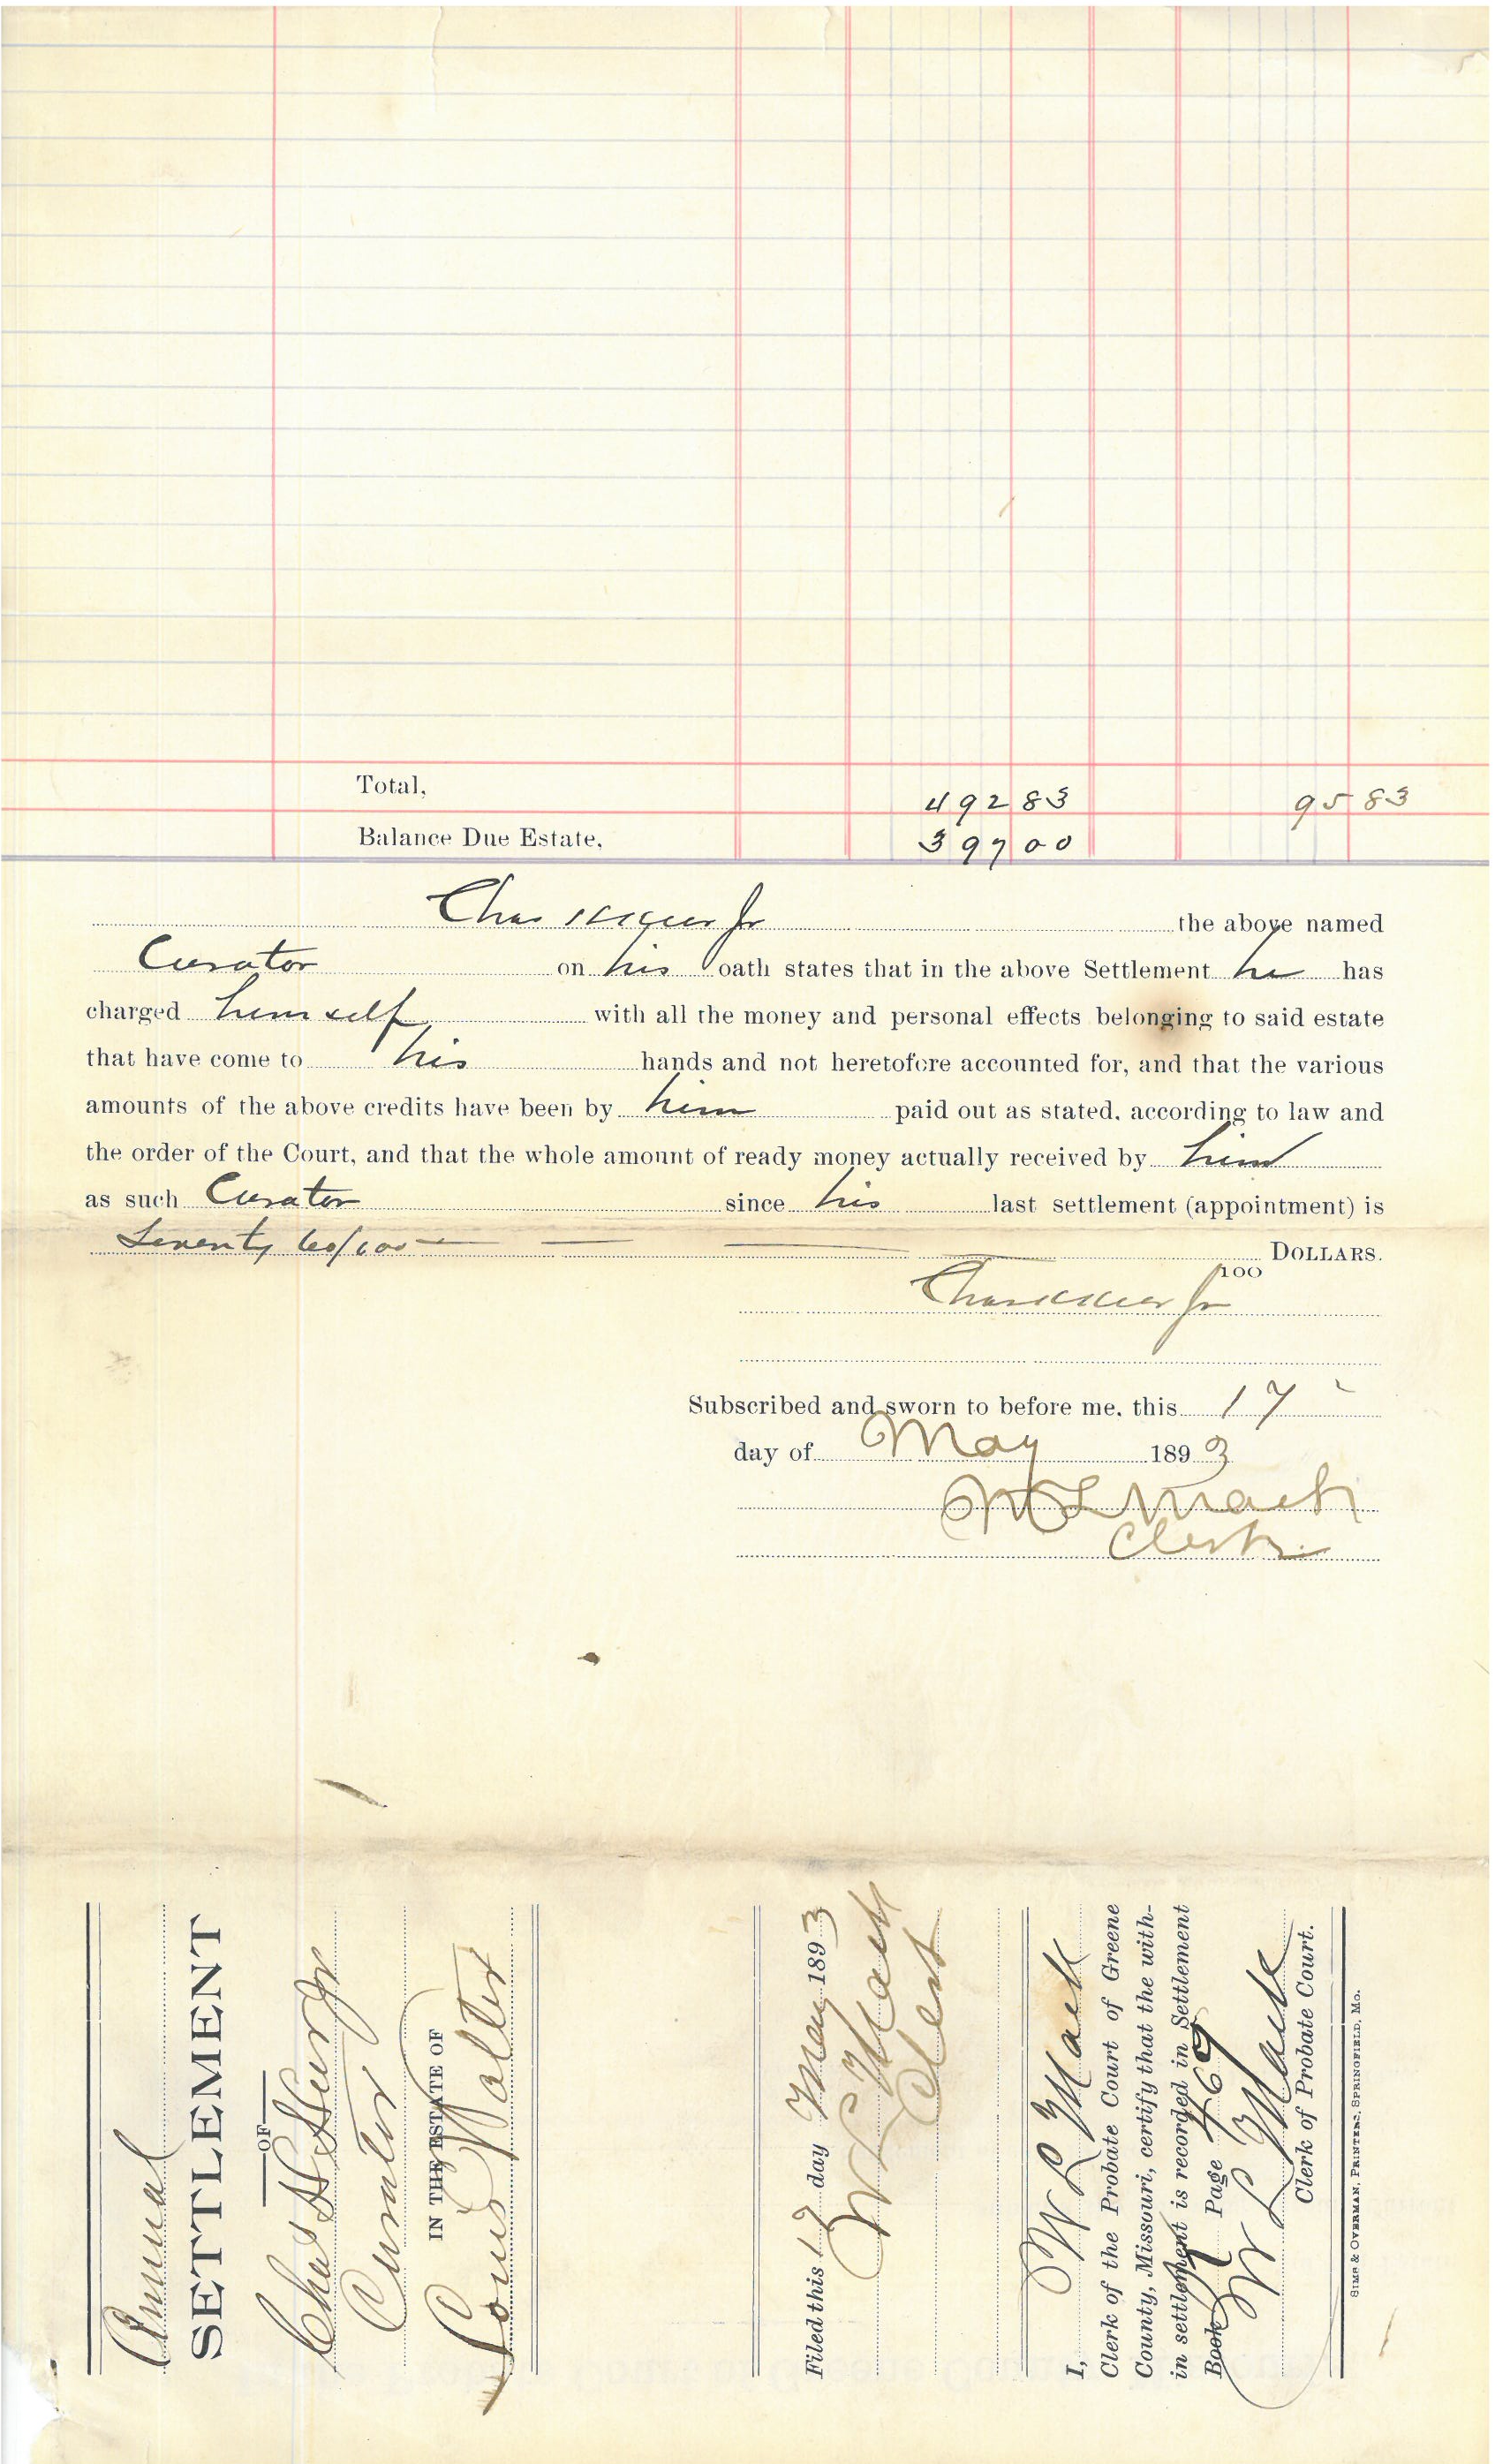 Total, 492 83 95 83
Balance Due Estate, 397 00
Chas Jr the above named
Curator on his oath states that in the above Settlement he has
charged himself with all the money and personal effects belonging to said estate
that have come to his hands and not heretofore accounted for, and that the various
amounts of the above credits have been by him paid out as stated, according to law and
the order of the Court, and that the whole amount of ready money actually received by him
as such Curator since his last settlement (appointment) is
Seventy 60/100 DOLLARS.
100
Chas Jr
Subscribed and sworn to before me, this 17
day of May 1893
W L Mack
Clerk
Annual
SETTLEMENT
OF
Chas H Jr
Curator
IN THE ESTATE OF
Louis Walter
Filed this 17 day May 1893
W L Mack
Clerk
I, W L Mack
Clerk of the Probate Court of Greene
County, Missouri, certify that the with-
in settlement is recorded in Settlement
Book Page 469
W L Mack
Clerk of Probate Court.
SIMS & OVERMAN, PRINTERS, SPRINGFIELD, MO.